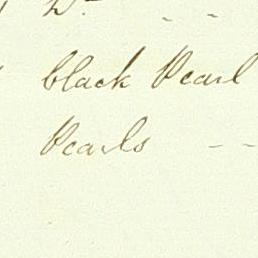 Do - -
black Pearl
Pearls - -